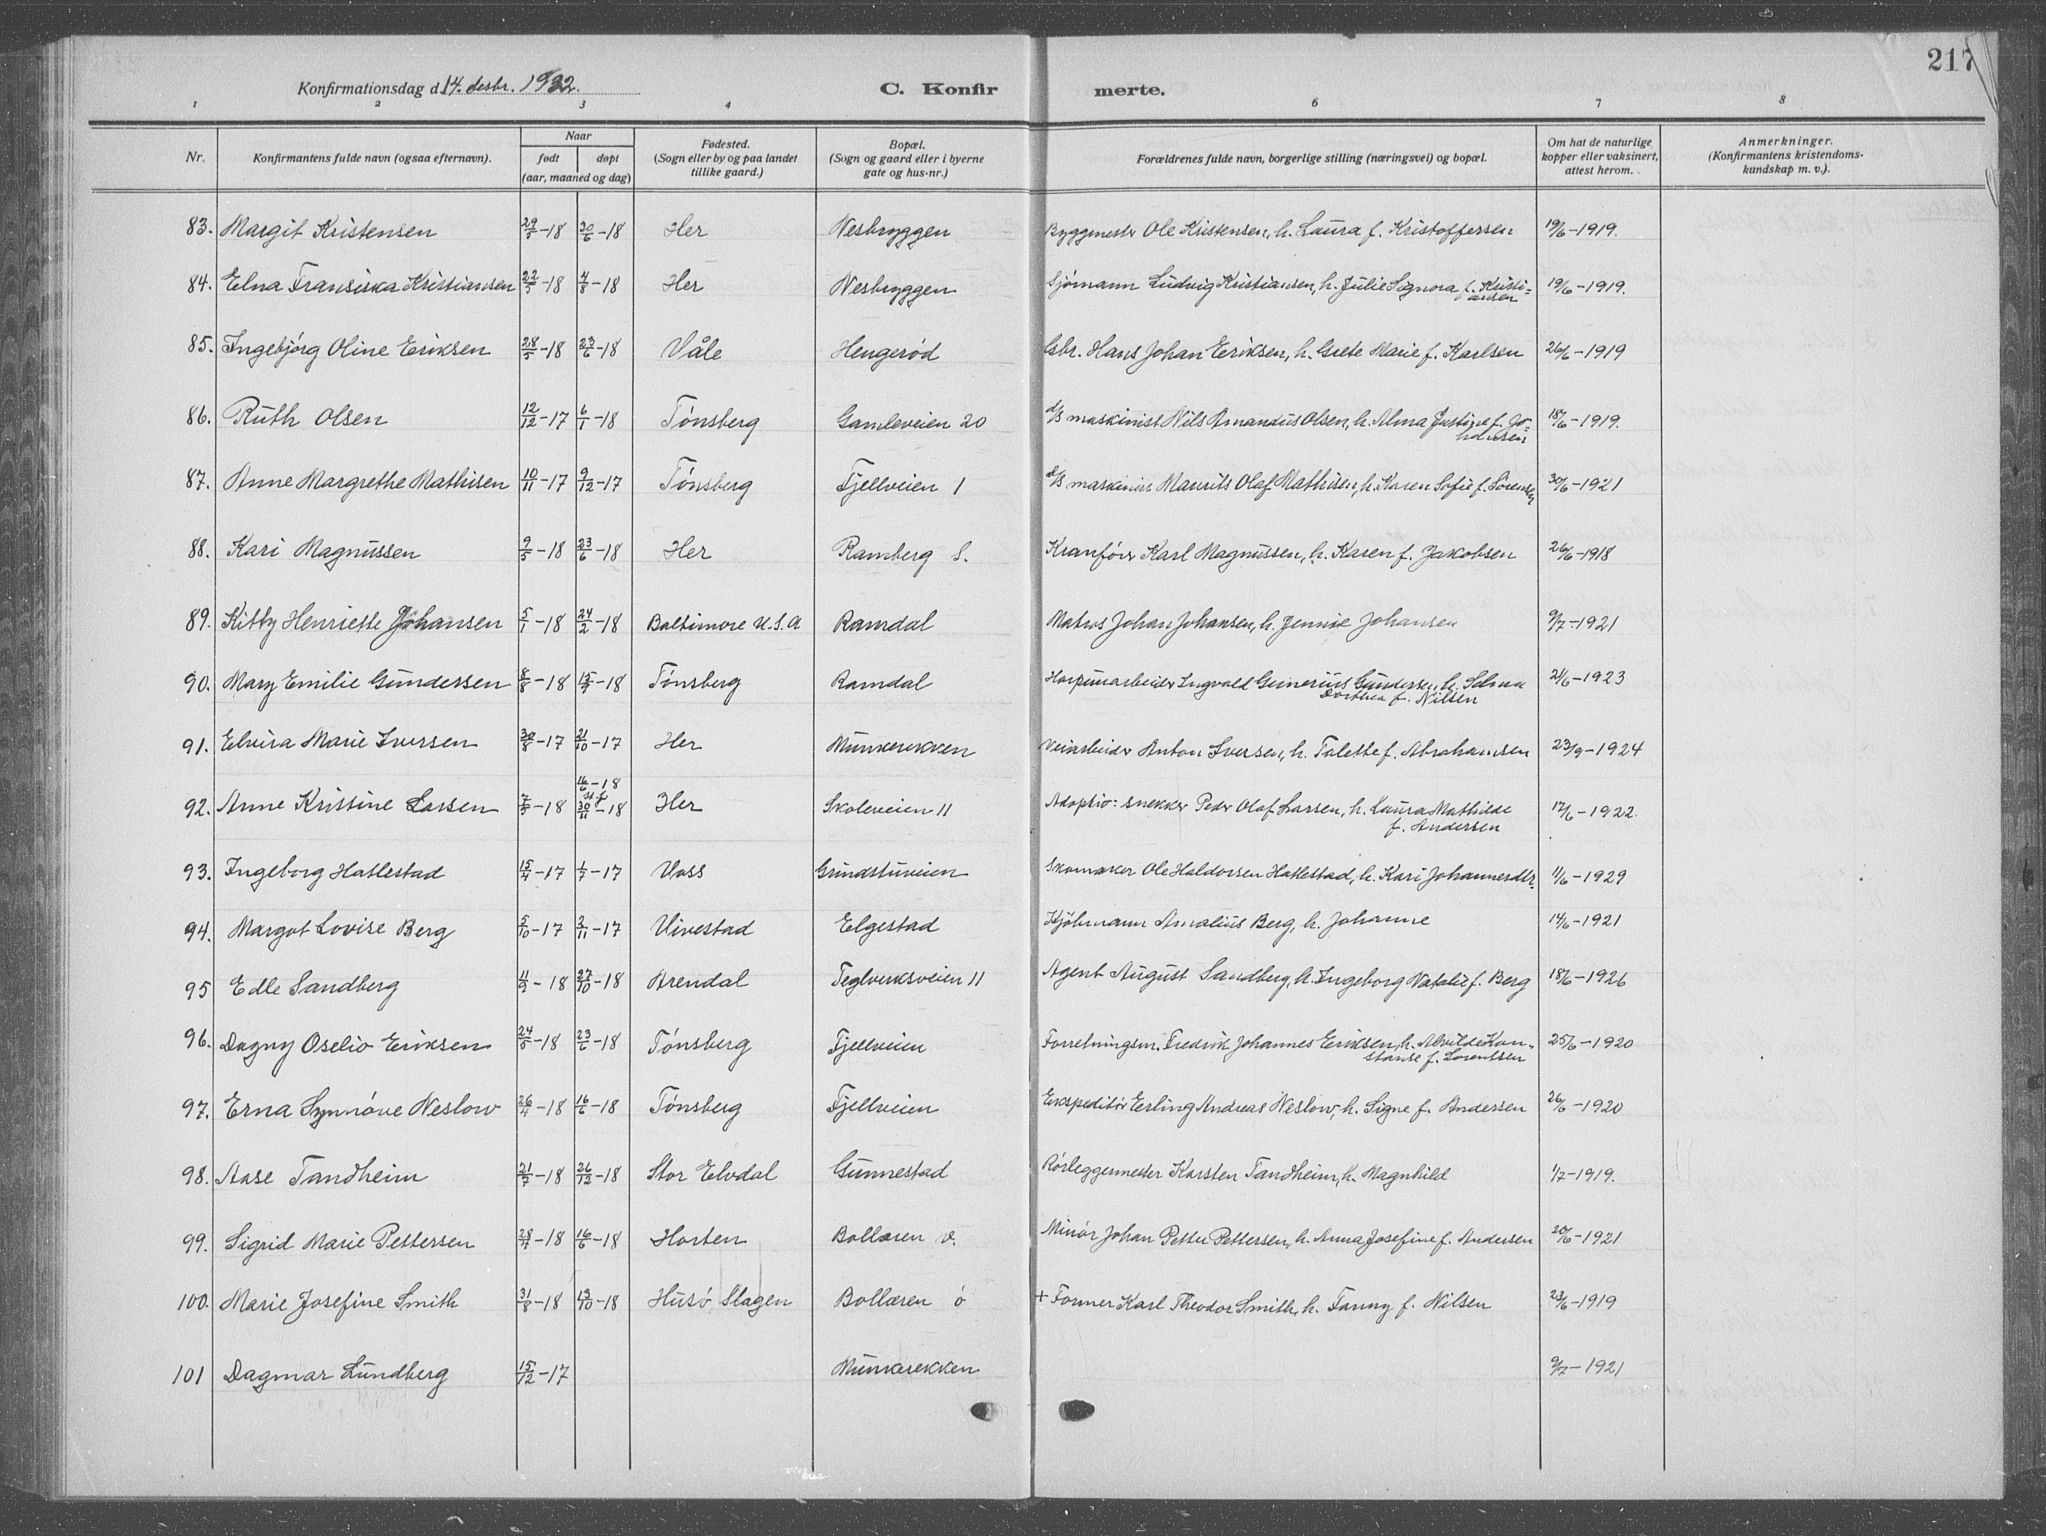 217
Konfirmationsdag d. 14. desbr. 1932.
C. Konfirmerte.
1 2 3 4 6 7 8
Nr.
Konfirmantens fulde navn (ogsaa efternavn).
Naar
født døpt
(aar, maaned og dag)
Fødested.
(Sogn eller by og paa landet
tillike gaard.)
Bopæl.
(Sogn og gaard eller i byerne
gate og hus-nr.)
Forældrenes fulde navn, borgerlige stilling (næringsvei) og bopæl.
Om hat de naturlige
kopper eller vaksinert,
attest herom.
Anmerkninger.
(Konfirmantens kristendoms-
kundskap m. v.).
83. Margit Kristensen 29/5-18 30/6-18 Her Nesbryggen Byggmester Ole Kristensen, h. Laura f. Kristoffersen 19/6-1919.
84. Elna Fransiska Kristiansen 22/5-18 4/8-18 Her Nesbryggen Sjømann Ludvig Kristiansen, h. Julie Signora f. Kristi-
ansen 19/6-1919.
85. Ingebjørg Oline Eriksen 28/5-18 23/6-18 Våle Hengerød Gbr. Hans Johan Eriksen, h. Grete Marie f. Karlsen 26/6-1919
86. Ruth Olsen 12/12-17 6/1-18 Tønsberg Gamleveien 20 d/s maskinist Nils Amandus Olsen, h. Alma Justine f. Jo-
hansen 18/6-1919.
87. Anne Margrethe Mathisen 10/11-17 9/12-17 Tønsberg Fjellveien 1 d/s maskinist Maurits Olaf Mathisen, h. Karen Sofie f. Sørensen 30/6-1921
88. Kari Magnussen 9/5-18 23/6-18 Her Ramberg S. Kranfører Karl Magnussen, h. Karen f. Jakobsen 26/6-1918
89. Kitty Henriette Johansen 5/1-18 24/2-18 Baltimore U.S.A Ramdal Matros Johan Johansen, h. Jennie Johansen 9/7-1921
90. Mary Emilie Gundersen 8/8-18 15/9-18 Tønsberg Ramdal Harpunarbeider Ingvald Gunerius Gundersen, h. Selma
Dorthea f. Nilsen 21/6-1923
91. Elvira Marie Iversen 30/8-17 21/10-17 Her Munkerekken Veiarbeider Anton Iversen, h. Talette f. Abrahamsen 23/9-1924
16/6-18
92. Anne Kristine Larsen 7/5-18 30/11-18 Her Skoleveien 11 Adoptiv: snekker Peder Olaf Larsen, h. Laura Mathilde
f. Andersen 17/6-1922.
93. Ingeborg Hatlestad 15/4-17 1/7-17 Voss Grindstuveien Skomaker Ole Haldorsen Hatlestad, h. Kari Johannesdtr. 11/6-1929
94. Margot Lovise Berg 5/10-17 2/11-17 Vivestad Elgestad Kjøbmann Amalius Berg, h. Johanne 14/6-1921
95 Edle Sandberg 11/9-18 27/10-18 Arendal Teglverksveien 11 Agent August Sandberg, h. Ingeborg Natalie f. Berg 18/6-1926
96. Dagny Oselio Eriksen 24/5-18 23/6-18 Tønsberg Fjellveien Forretningsm. Fredrik Johannes Eriksen, h. Alvilde Kon-
stanse f. Lorentsen 25/6-1920
97. Erna Synnøve Neslow 26/4-18 16/6-18 Tønsberg Fjellveien Ekspeditør Erling Andreas Neslow, h. Signe f. Andersen 26/6-1920
98. Aase Tandheim 21/7-18 26/12-18 Stor Elvdal Gunnestad Rørleggermester Karsten Tandheim, h. Magnhild 1/7-1919.
99. Sigrid Marie Pettersen 28/4-18 16/6-18 Horten Bollæren v. Minør Johan Petter Pettersen, h. Anna Josefine f. Andersen 20/6-1921
100. Marie Josefine Smith 31/8-18 13/10-18 Husø, Slagen Bollæren ø + Former Karl Theodor Smith, h. Fanny f. Nilsen 23/6-1919
101 Dagmar Lundberg 15/12-17 Munkerekken 9/7-1921